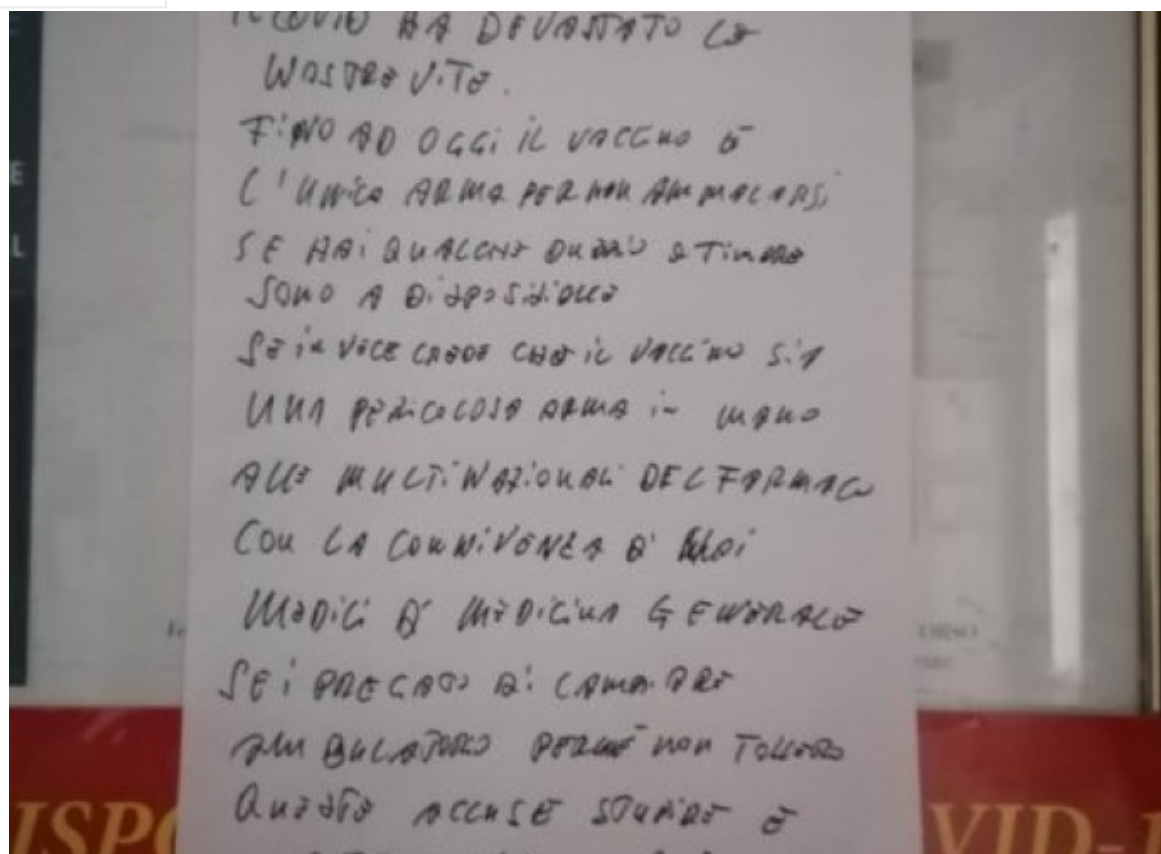 IL COVID HA DEVASTATO LE
NOSTRE VITE.
FINO AD OGGI IL VACCINO È
L'UNICA ARMA PER NON AMMALARSI
SE HAI QUALCHE DUBBIO O TIMORE
SONO A DISPOSIZIONE
SE INVECE CREDI CHE IL VACCINO SIA
UNA PERICOLOSA ARMA IN MANO
ALLE MULTINAZIONALI DEL FARMACO
CON LA CONNIVENZA DI NOI
MEDICI DI MEDICINA GENERALE
SEI PREGATO DI CAMBIARE
AMBULATORIO PERCHÉ NON TOLLERO
QUESTE ACCUSE STUPIDE E
E
L
ORSO
ISPO
VID-1